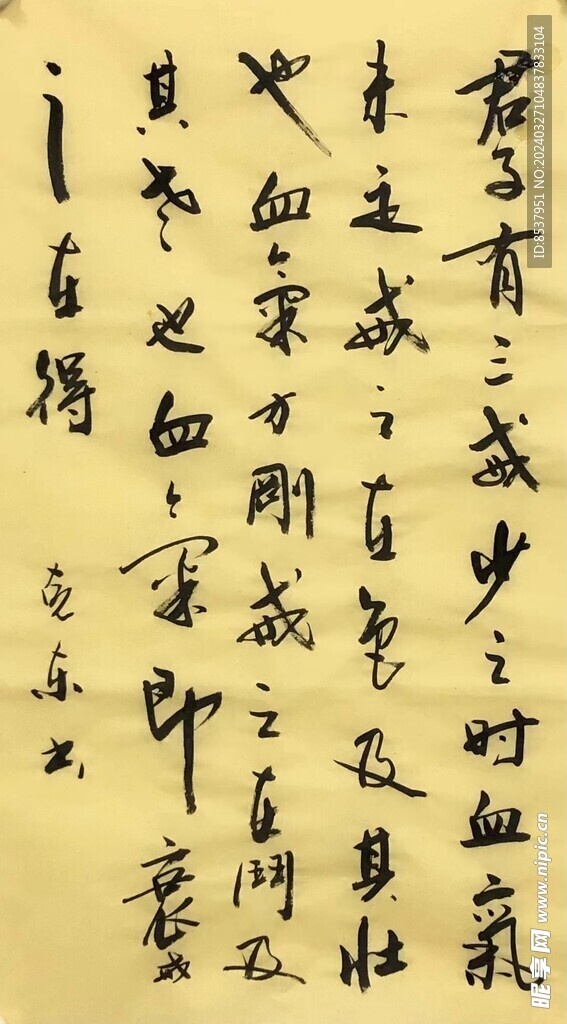 君子有三戒少之时血氣
未定戒之在色及其壯
也血氣方剛戒之在鬥及
其老也血氣即衰戒
之在得
克东书
ID:8537951 NO:20240327104837833104
昵享网 www.nipic.cn